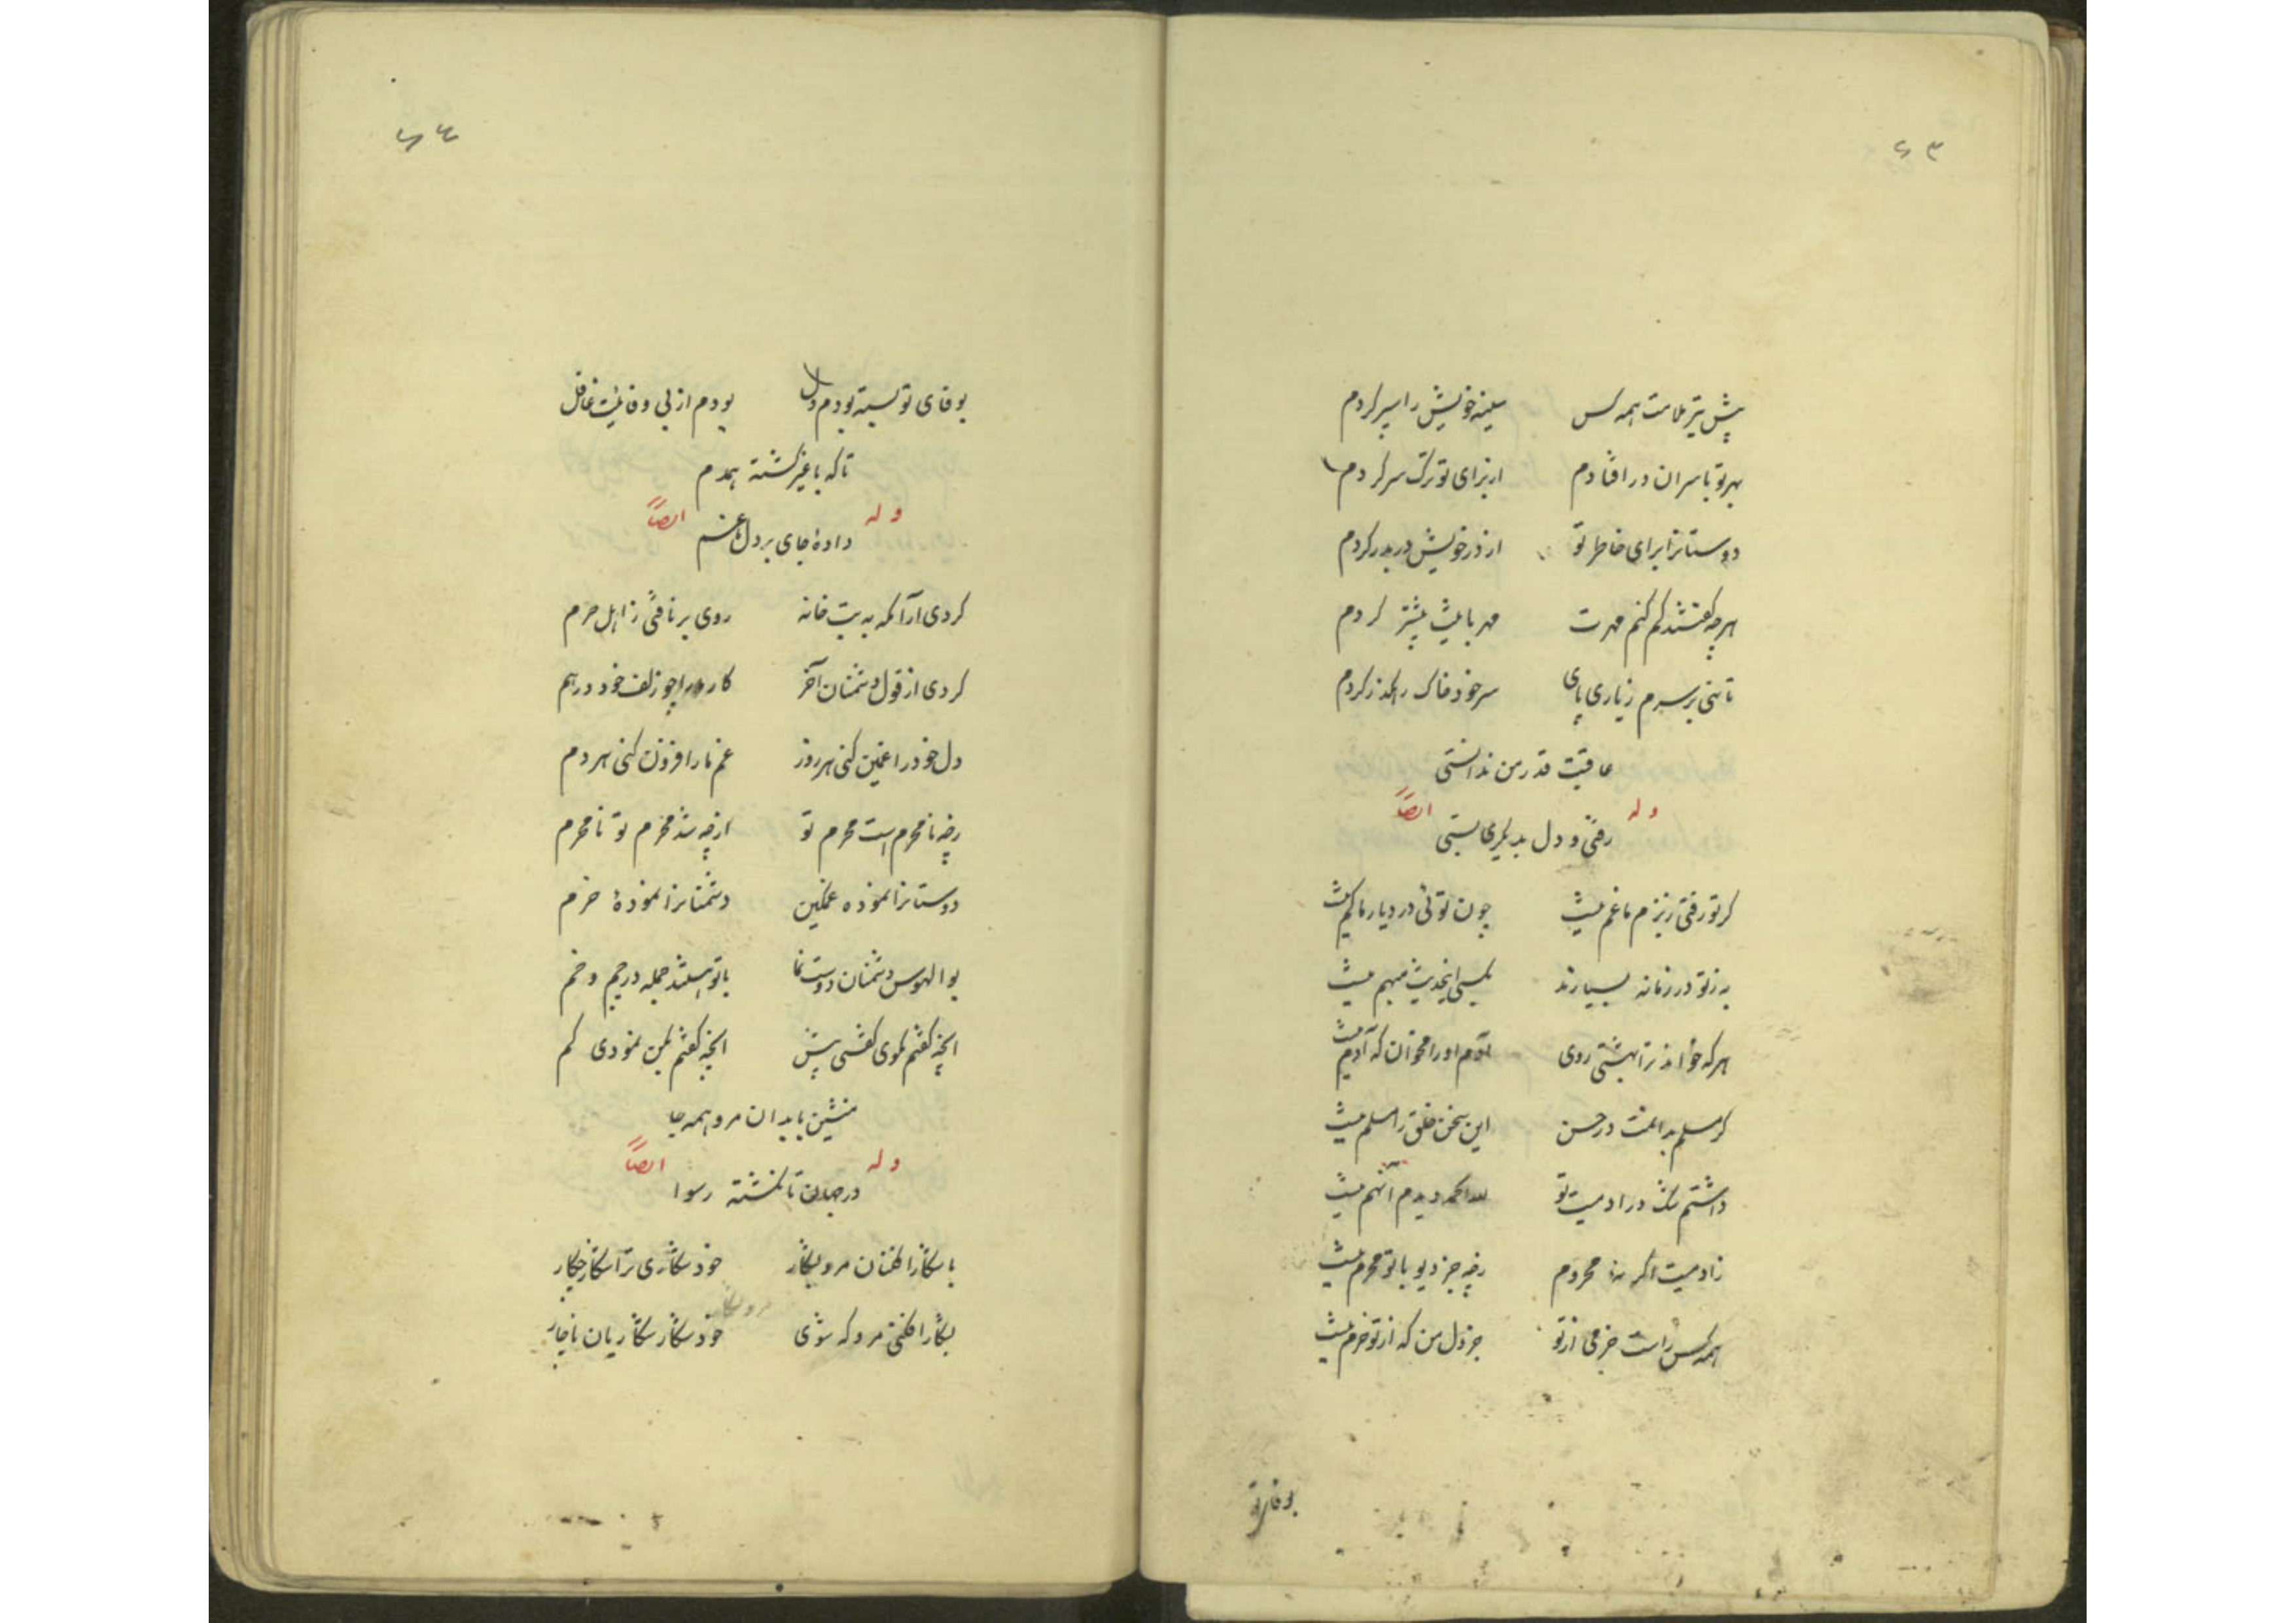 ۶۳
پیش تیر ملامت همه کس سینه خویش را سپر کردم
بهر تو با سران در افتادم از برای تو ترک سر کردم
دوستانرا برای خاطر تو از در خویش در بدر کردم
هر چه گفتند کم کنم مهرت مهر باشد بیشتر کردم
تا نهی بر سرم ز یاری پای سر خود خاک رهگذر کردم
عاقبت قدر من ندانستی
وله ایضاً
رفتی و دل بدیگری بستی
گر تو رفتی ز بزم ما غم نیست چون توئی در دیار ما کم نیست
به ز تو در زمانه بسیارند بکسی اینحدیث مبهم نیست
هر که خواند ترا بهشتی روی آدم او را مخوان که آدم نیست
گر مسلم بدانمت در حسن این سخن خلق را مسلم نیست
داشتم شک در آدمیت تو لله الحمد دیدم آنهم نیست
ز آدمیت اگر نه محروم از چه جز دیو با تو محرم نیست
همه کس راست خرمی از تو جز دل من که از تو خرم نیست
بوفای تو
۶۴
بوفای تو بسته بودم دل بودم از بی وفائیت غافل
تا که با غیر گشته همدم
وله ایضاً
داده جای بر دل غم
کردی آرامگه به بیت خانه روی بر تافتی ز اهل حرم
کردی از قول دشمنان آخر کار ما را چو زلف خود درهم
دل خود را غمین کنی هر روز غم ما را فزون کنی هر دم
از چه نامحرم است محرم تو از چه شد محرم تو نامحرم
دوستانرا نموده غمگین دشمنانرا نمودهٔ خرم
بوالهوس دشمنان دوست نما با تو هستند جمله در چم و خم
آنچه گفتم مگوی گفتی بیش آنچه گفتم بکن نمودی کم
منشین با بدان مرو همه جا
وله ایضاً
در جهان تا نگشته رسوا
با شکار افکنان مرو بشکار خود شکاری ترا شکار چکار
بشکار افکنی مرو که شوی خود شکار شکاریان ناچار